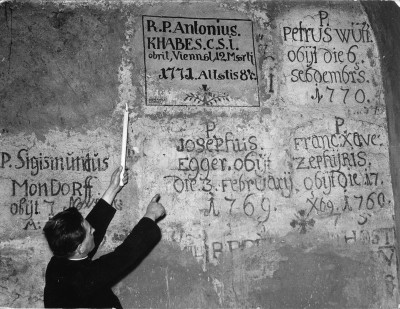 R.P. Antonius.
KHABES.C.S.I.
obiit, Viennæ, 12 Marti
1771. Ætatis 84.
P.
PETRUS WÜ
obijt die 6.
septembris.
1770.
P. Sigismundus
MonDorff
obijt 7
A:
P.
Josephus
Egger. obijt
die 3. februarij
1769.
P.
Franc. Xave.
ZEPHJRIS.
obijt die 17.
Xbg. 1760.